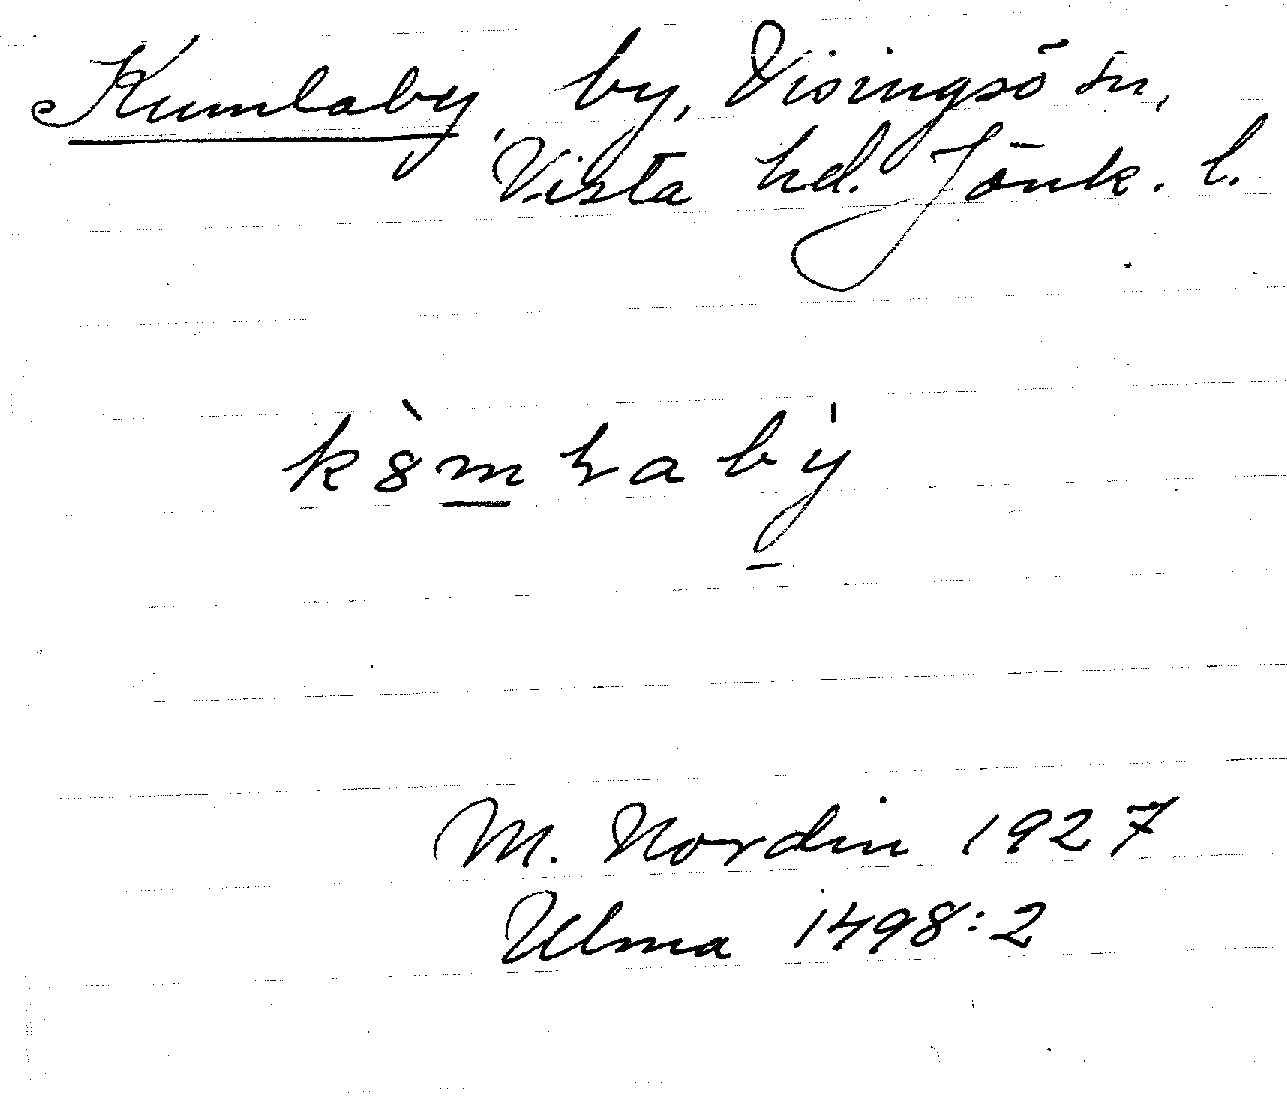 Kumlaby, by, Visingsö sn,
Vista hd. Jönk. l.
k8̀m̲laby̍
M. Nordin 1927
Ulma 1498:2